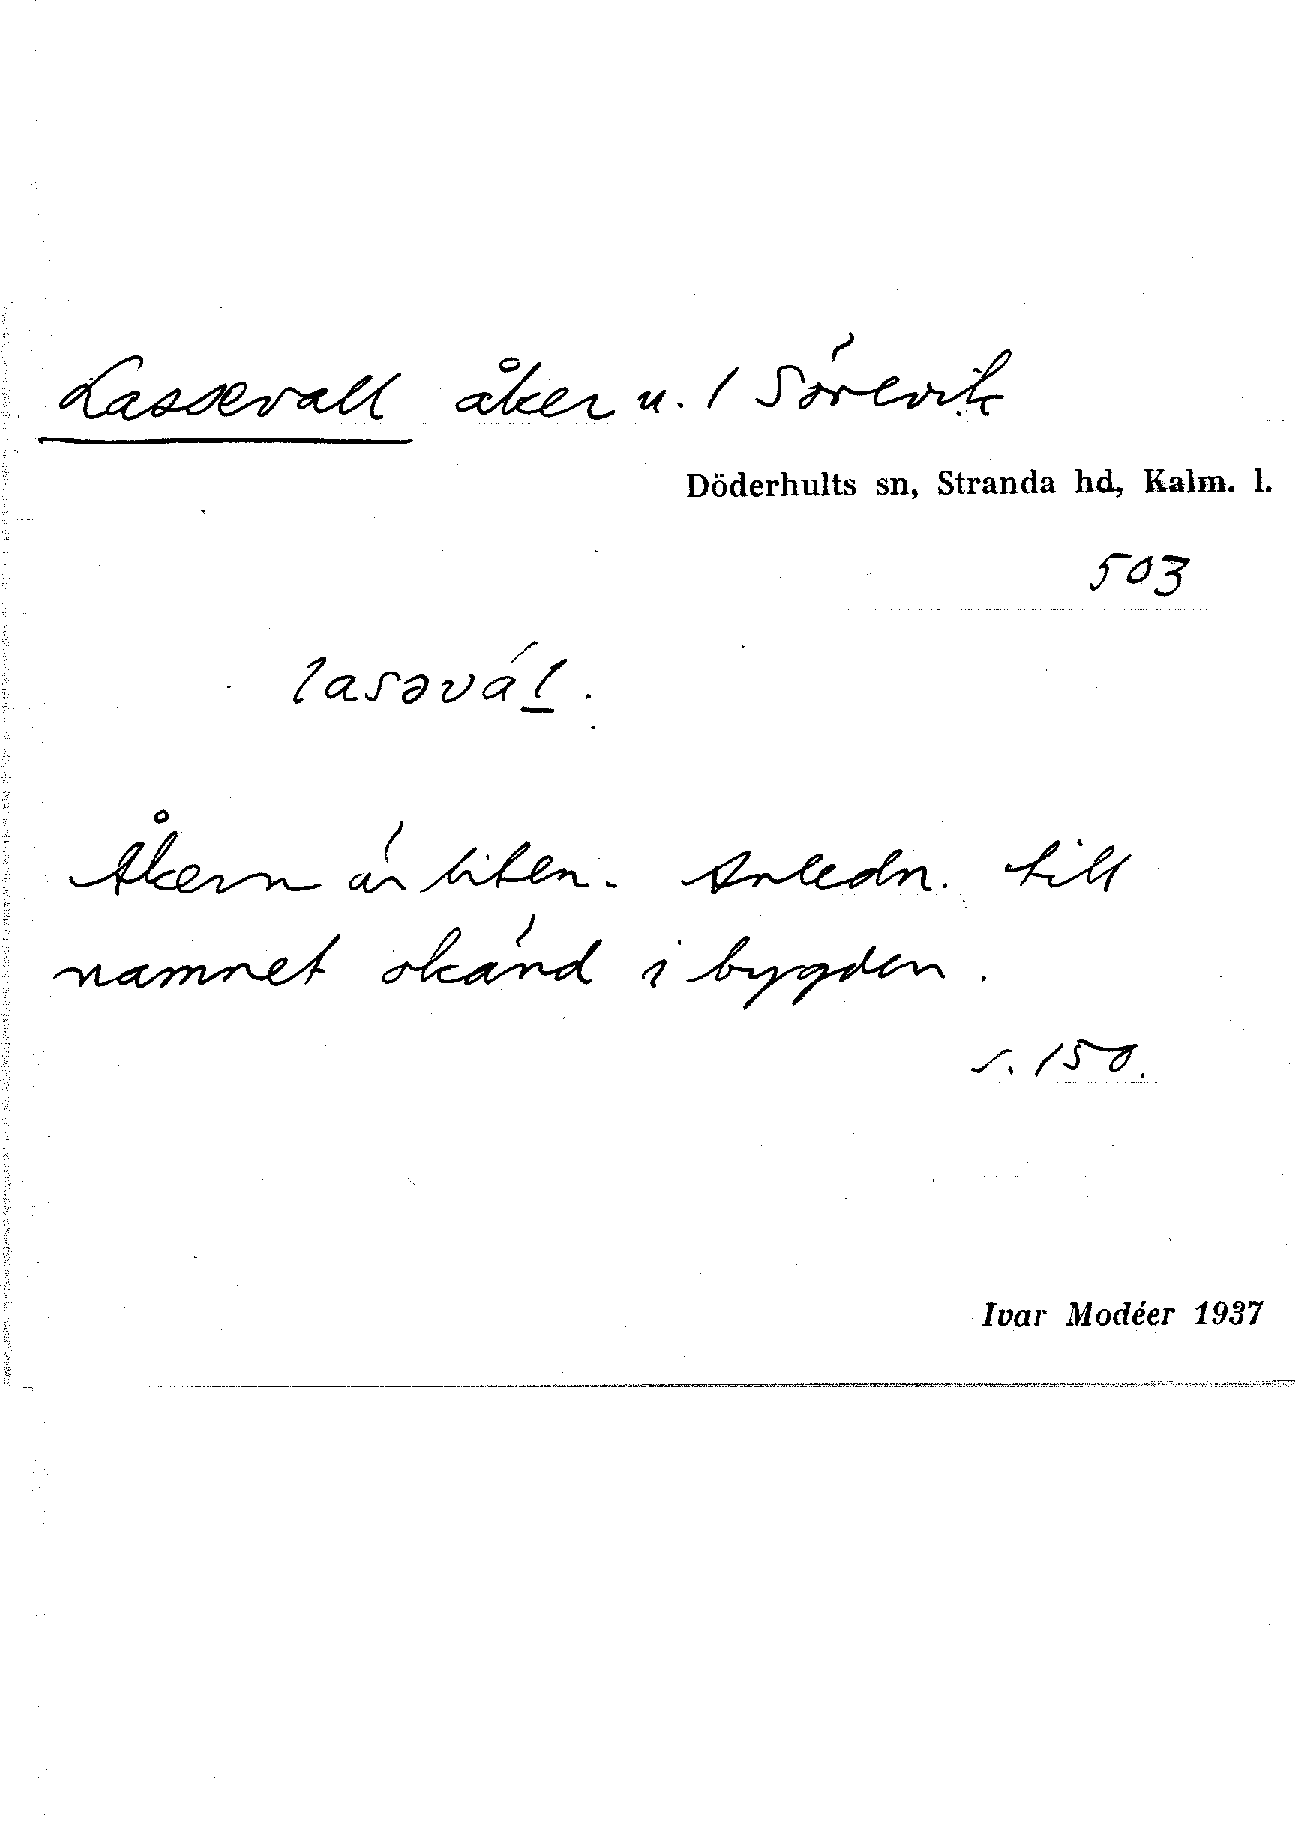 Lassevall åker u. 1 Sörevik
Döderhults sn, Stranda hd, Kalm. l.
503
lasəvál.
Åkern är liten. Anledn. till
namnet okänd i bygden.
s. 150.
Ivar Modéer 1937